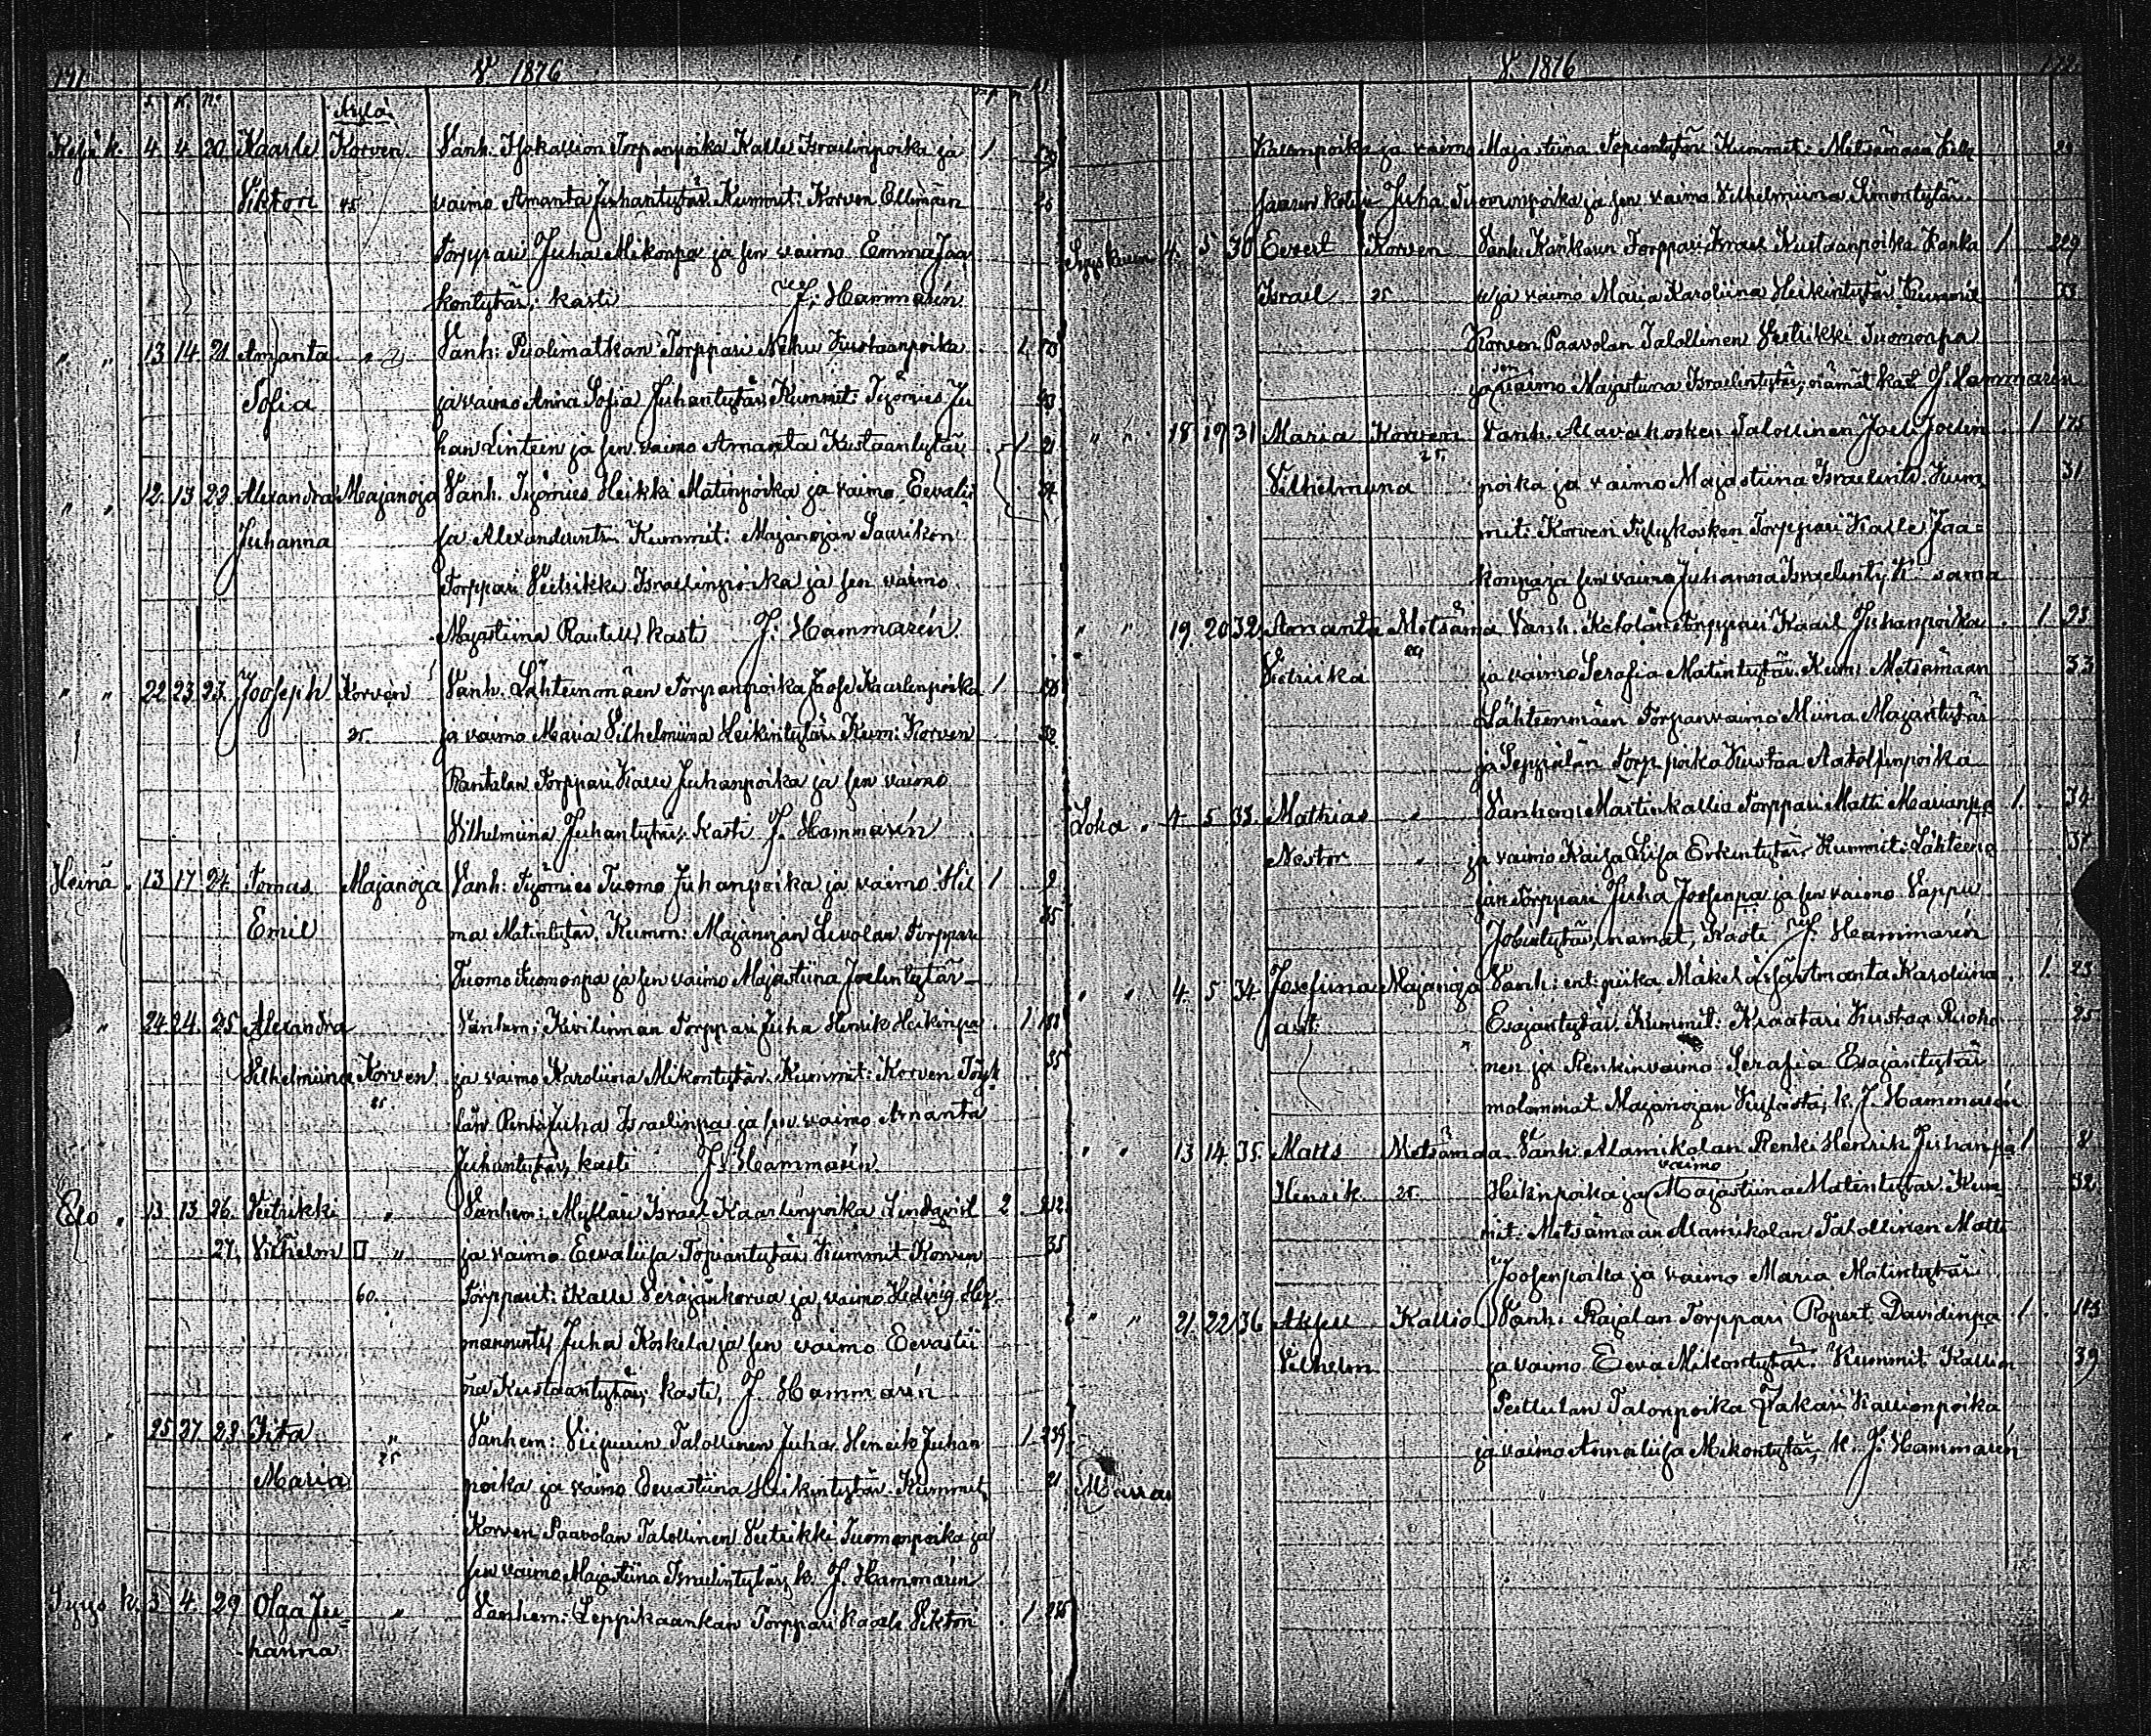 171 V 1876
s. k. n:o Kylä
Kesä k. 4. 4. 20 Kaarle Korven Vanh. Torpanpoika Kalle Israelinpoika ja 1
Viktori 25 vaimo Amanta Juhantytär. Kummit: Korven Ellimäen 26
Torppari Juha Mikonpa ja sen vaimo Emma Jaa
kontytär; kasti J. Hammarén
" " 13 14. 21 Amanta " Vanh: Puolimatkan Torppari Nehu Kustaanpoika 1.
Sofia ja vaimo Anna Sofia Juhantytär. Kummit: Työmies Ju
han Linteen ja sen vaimo Amanta Kustaantytär 1 21
" " 12. 13 22. Alexandra Majanoja Vanh. Työmies Heikki Matinpoika ja vaimo Eevalii
Juhanna sa Kummit: Majanojan Saarikon
Torppari Veetrikki Israelinpoika ja sen vaimo
Majastiina kasti J. Hammarén.
" " 22 23 23. Jooseph Korven Vanh. Lähteenmäen Torpanpoika Joose Kaarlenpoika 1
25. ja vaimo Maria Vilhelmiina Heikintytär. Kum: Korven 32
Rantalan Torppari Kalle Juhanpoika ja sen vaimo
Vilhelmiina Juhantytär, kasti J. Hammarén
Heinä " 13 17 24. Tomas Majanoja Vanh: Työmies Tuomo Juhanpoika ja vaimo Hil 1 9
Emil ma Matintytär. Kumm: Majanojan Livolan Torppari 35
Tuomo Tuomonpa ja sen vaimo Majastiina Joelintytär
" 24. 24. 25 Alexandra Vanhem: Kivilinnan Torppari Juha Henrik Heikinpa 1
Vilhelmiina Korven ja vaimo Karoliina Mikontytär. Kummit: Korven 35
25. län Renki Juha Israelinpa ja sen vaimo Amanta
Juhantytär, kasti J. Hammarén
Elo " 13. 13 26. Veetrikki " Vanhem: Mylläri Israel Kaarlenpoika Lindqvist 2 212
27, Vilhelm " ja vaimo Eevaliisa Topiantytär. Kummit Korven 35
60. Torpparit: Kalle Veräjänkorva ja vaimo Hedvig Her
mannint; Juha Koskela ja sen vaimo Eevastii
na Kustaantytär; kasti, J. Hammarén
" " 25 27 28 Iita " Vanhem: Talollinen Juha Henrik Juhan 1 239
Maria 25 poika ja vaimo Eevastiina Heikintytär. Kummit, 21
Korven Paavolan Talollinen Veetrikki Tuomonpoika ja
sen vaimo Majastiina Israelintytär, k. J. Hammarén
Syys k. 3 4. 29 Olga Ju= " Vanhem: Leppikaankan Torppari Kaarle Viktori 1
hanna
V. 1876 172.
Kallenpoika ja vaimo Majastiina Topiantytär. Kummit: Metsämaan
Juha Tuomonpoika ja sen vaimo Vilhelmiina Simontytär.
Syyskuun 4. 5 30 Evert Korven Vanh: Kankaan Torppari Israel Kustaanpoika Kanka 1 229
Israel 25 ja vaimo Maria Karoliina Heikintytär Kummit 33
Korven Paavolan Talollinen Veetrikki Tuomonpa
ja sen vaimo Majastiina Israelintytär, nämät kast. J. Hammarén
" " 18 19 31 Maria Korven Vanh. Alavakosken Talollinen Joel Joelin 1 175
25. Vilhelmiina poika ja vaimo Majastiina Israelint. Kum 31
mit: Korven Torppari Kalle Jaa=
konpa ja sen vaimo Juhanna Israelinty. K. sama
" " 19. 20 32. Amanta Metsämaa Vanh. Ketolan Torppari Kaarl Juhanpoika 1 23
Vetriika ja vaimo Serafia Matintytär. Kum. Metsämaan 33
Lähteenmäen Torpanvaimo Miina Majantytär
ja Seppälän Torp. poika Kustaa Aatolfinpoika
Loka " 4. 5 33. Mathias " Vanhem: Martinkallio Torppari Matti Marianpa 1. 34
Nestor " ja vaimo Kaisa Liisa Erkintytär. Kummit: Lähteeno 37
jan Torppari Juha Joosenpa ja sen vaimo Vappu
nämät, kaste J. Hammarén
" " 4. 5 34. Josefiina Majanoja Vanh: ent: piika Mäkelässä Amanta Karoliina 1. 23
aut: Esajantytär. Kummit: Kraatari Kustaa Ruoho 25
nen ja Renkinvaimo Serafia Esajantytär
molemmat Majanojan Kylästä, k. J. Hammarén
" " 13 14. 35. Matts Metsämaa Vanh. Alamikolan Renki Henrik Juhanpa 1 8
Henrik 25. Heikinpoika ja vaimo Majastiina Matintytär Kum 32.
mit: Metsämaan Alamikolan Talollinen Matti
Joosenpoika ja vaimo Maria Matintytär
" " 21. 22 36 Akseli Kallio Vanh: Rajalan Torppari Ropert Davidinpa 1.
Vilhelm ja vaimo Eeva Mikontytär. Kummit Kallion 39
Peltulan Talonpoika Sakari Kallionpoika
ja vaimo Annaliisa Mikontytär, k. J. Hammarén
Marras